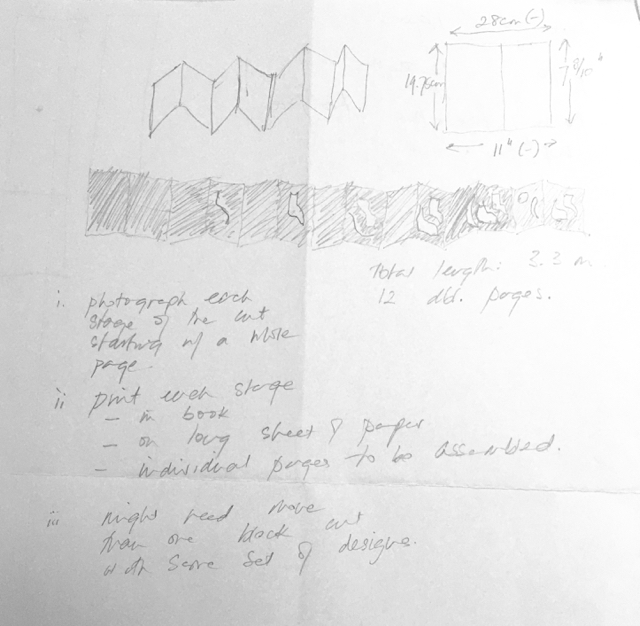 28cm (-)
19.75cm
7 8/10"
11" (-)
Total length: 3.3 m
12 dbl. pages.
i. photograph each
stage of the cut
starting w/ a whole
page.
ii print each stage
- in book
- on long sheet of paper
- individual pages to be assembled.
iii might need more
than one block cut
with same set of designs.